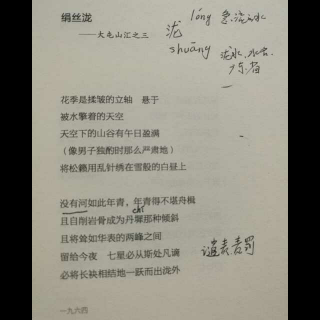 绢丝泷
——大屯山汇之三
泷 lóng 急流的水
shuāng 泷水，水名
广东省
花季是揉皱的立轴　悬于
被水擎着的天空
天空下的山谷有午日盈满
（像男子独酌时那么严肃地）
将松籁用乱针绣在雪般的白昼上
没有河如此年青，年青得不堪舟楫
且自削岩骨成为丹墀那种倾斜
chí
且将耸如华表的两峰之间
留给今夜　七星必从斯处凡谪
必将长袂相结地一跃而出泷外
谴责 责罚
一九六四